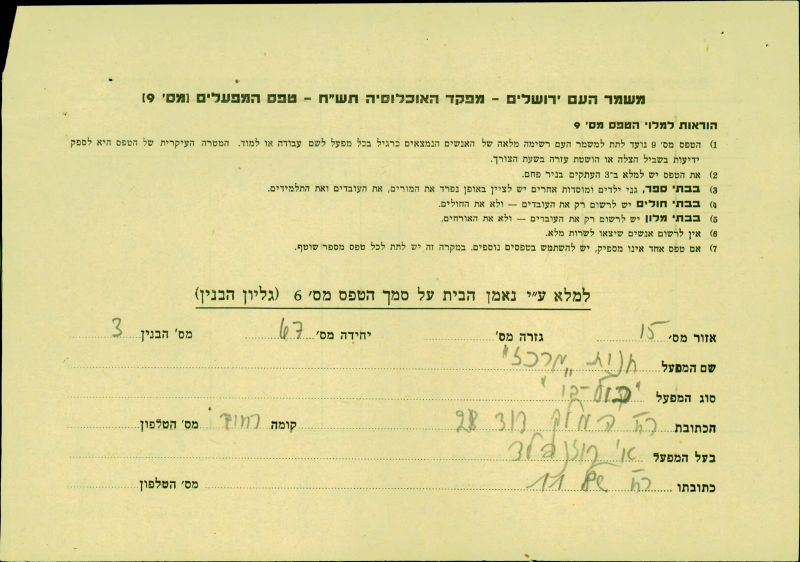 משמר העם ירושלים – מפקד האוכלוסיה תש"ח – טפס המפעלים [מס' 9]
הוראות למלוי הטפס מס' 9
1) הטפס מס' 9 נועד לתת למשמר העם רשימה מלאה של האנשים הנמצאים כרגיל בכל מפעל לשם עבודה או למוד. המטרה העיקרית של הטפס היא לספק
ידיעות בשביל הצלה או הושטת עזרה בשעת הצורך.
2) את הטפס יש למלא ב־3 העתקים בניר פחם.
3) בבתי ספר, גני ילדים ומוסדות אחרים יש לציין באופן נפרד את המורים, את העובדים ואת התלמידים.
4) בבתי חולים יש לרשום רק את העובדים — ולא את החולים.
5) בבתי מלון יש לרשום רק את העובדים — ולא את האורחים,
6) אין לרשום אנשים שיצאו לשרות מלא.
7) אם טפס אחד אינו מספיק, יש להשתמש בטפסים נוספים. במקרה זה יש לתת לכל טפס מספר שוטף.
למלא ע"י נאמן הבית על סמך הטפס מס' 6 (גליון הבנין)
אזור מס' 15 גזרה מס' יחידה מס' 67 מס' הבנין 3
שם המפעל חנות "מרכז"
סוג המפעל "כול-בו"
הכתובת רח' המלך דוד 28 קומה מס' הטלפון
בעל המפעל א' רוזנפלד
כתובתו רח' 11 מס' הטלפון